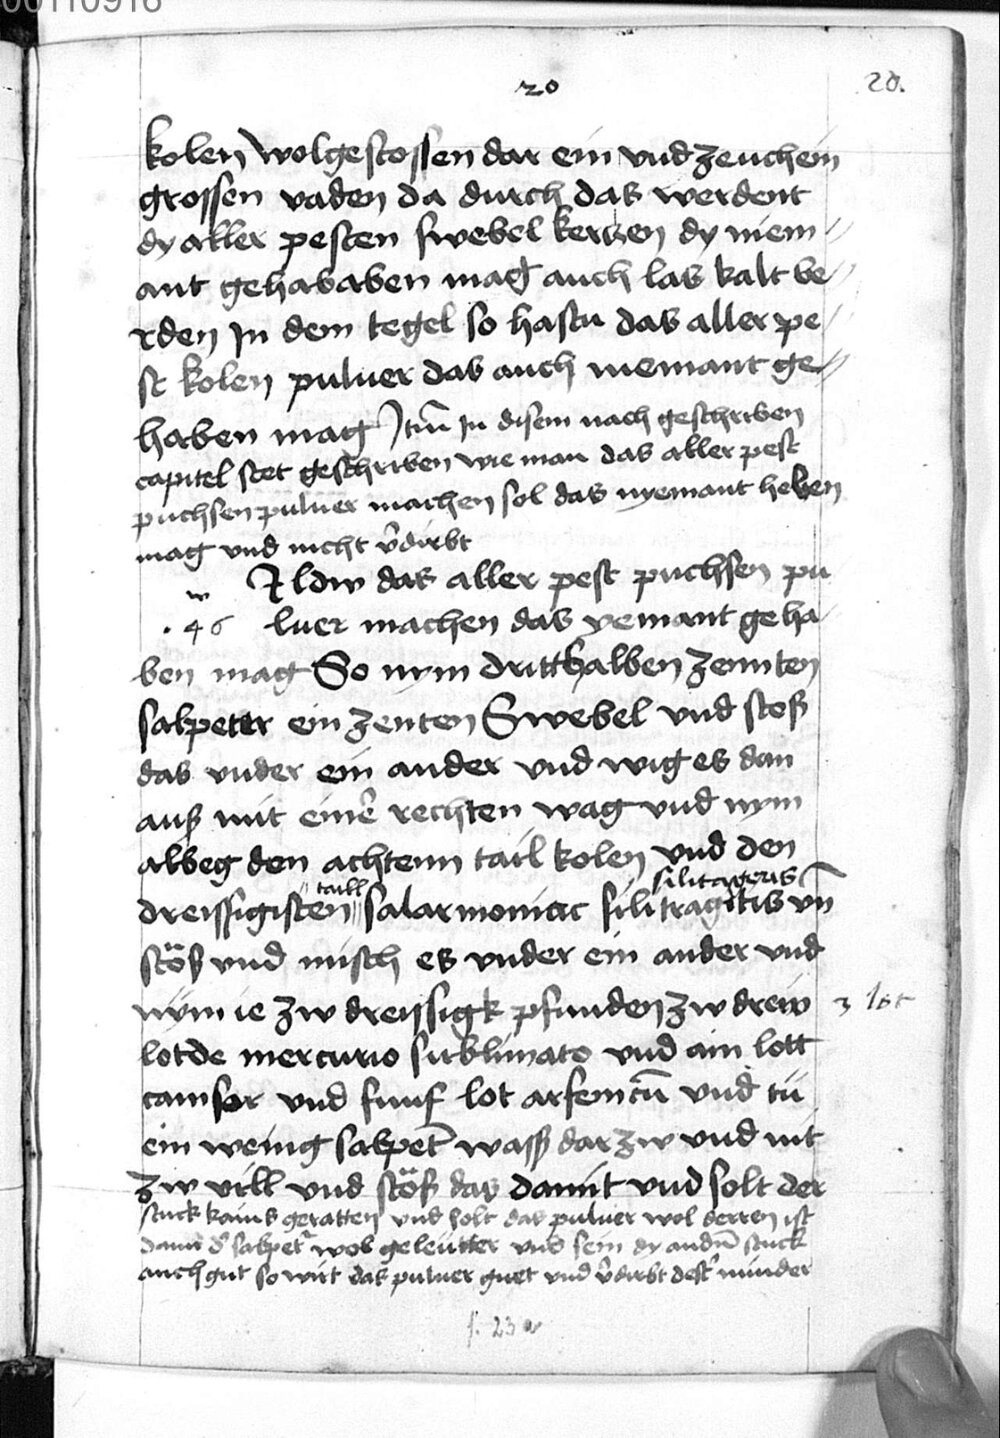 00110916
20
20.
kolen wolgestossen dar ein vnd zeuch ein
grossen vaden da durch das werdent
dy aller pesten swebel kertzen dy niem
ant gehababen mag auch las kalt be
rden In dem tegel so hastu das aller pe
st kolen puluer das auch niemant ge
haben mag Itm̄ In disem nach geschriben
capitel stet geschriben wie man das aller pest
puchsen puluer machen sol das nyemant heben
mag vnd nicht v̄dirbt
Wildw das aller pest puchsen pu
.46 luer machen das yemant geha
ben mag So nym dritthalben zennten
salpeter ein zenten Swebel vnd stoß
das vnder ein ander vnd wig es dan
auß mit einē rechten wag vnd nym
albeg den achtenn tail kolen vnd den
taill silitageris
dreissigisten salarmoniac silitragitis vn̄
stöß vnd misch es vnder ein ander vnd
nÿm ie zw dreissigk pfunden zw drew 3 lot
lot de mercurio sublimato vnd ain lott
camfer vnd funf lot arsenicū vnd tu
ein wenig salpet̄ wass dar zw vnd nit
zw vill vnd stöß das damit vnd solt der
stuck kains geratten vnd solt das puluer wol derren ist
dann d' salpet' wol geleutter vnd sein dy andn̄ stuck
auch gut so wirt das puluer guet vnd v̄dirbt dest' minder
f. 23